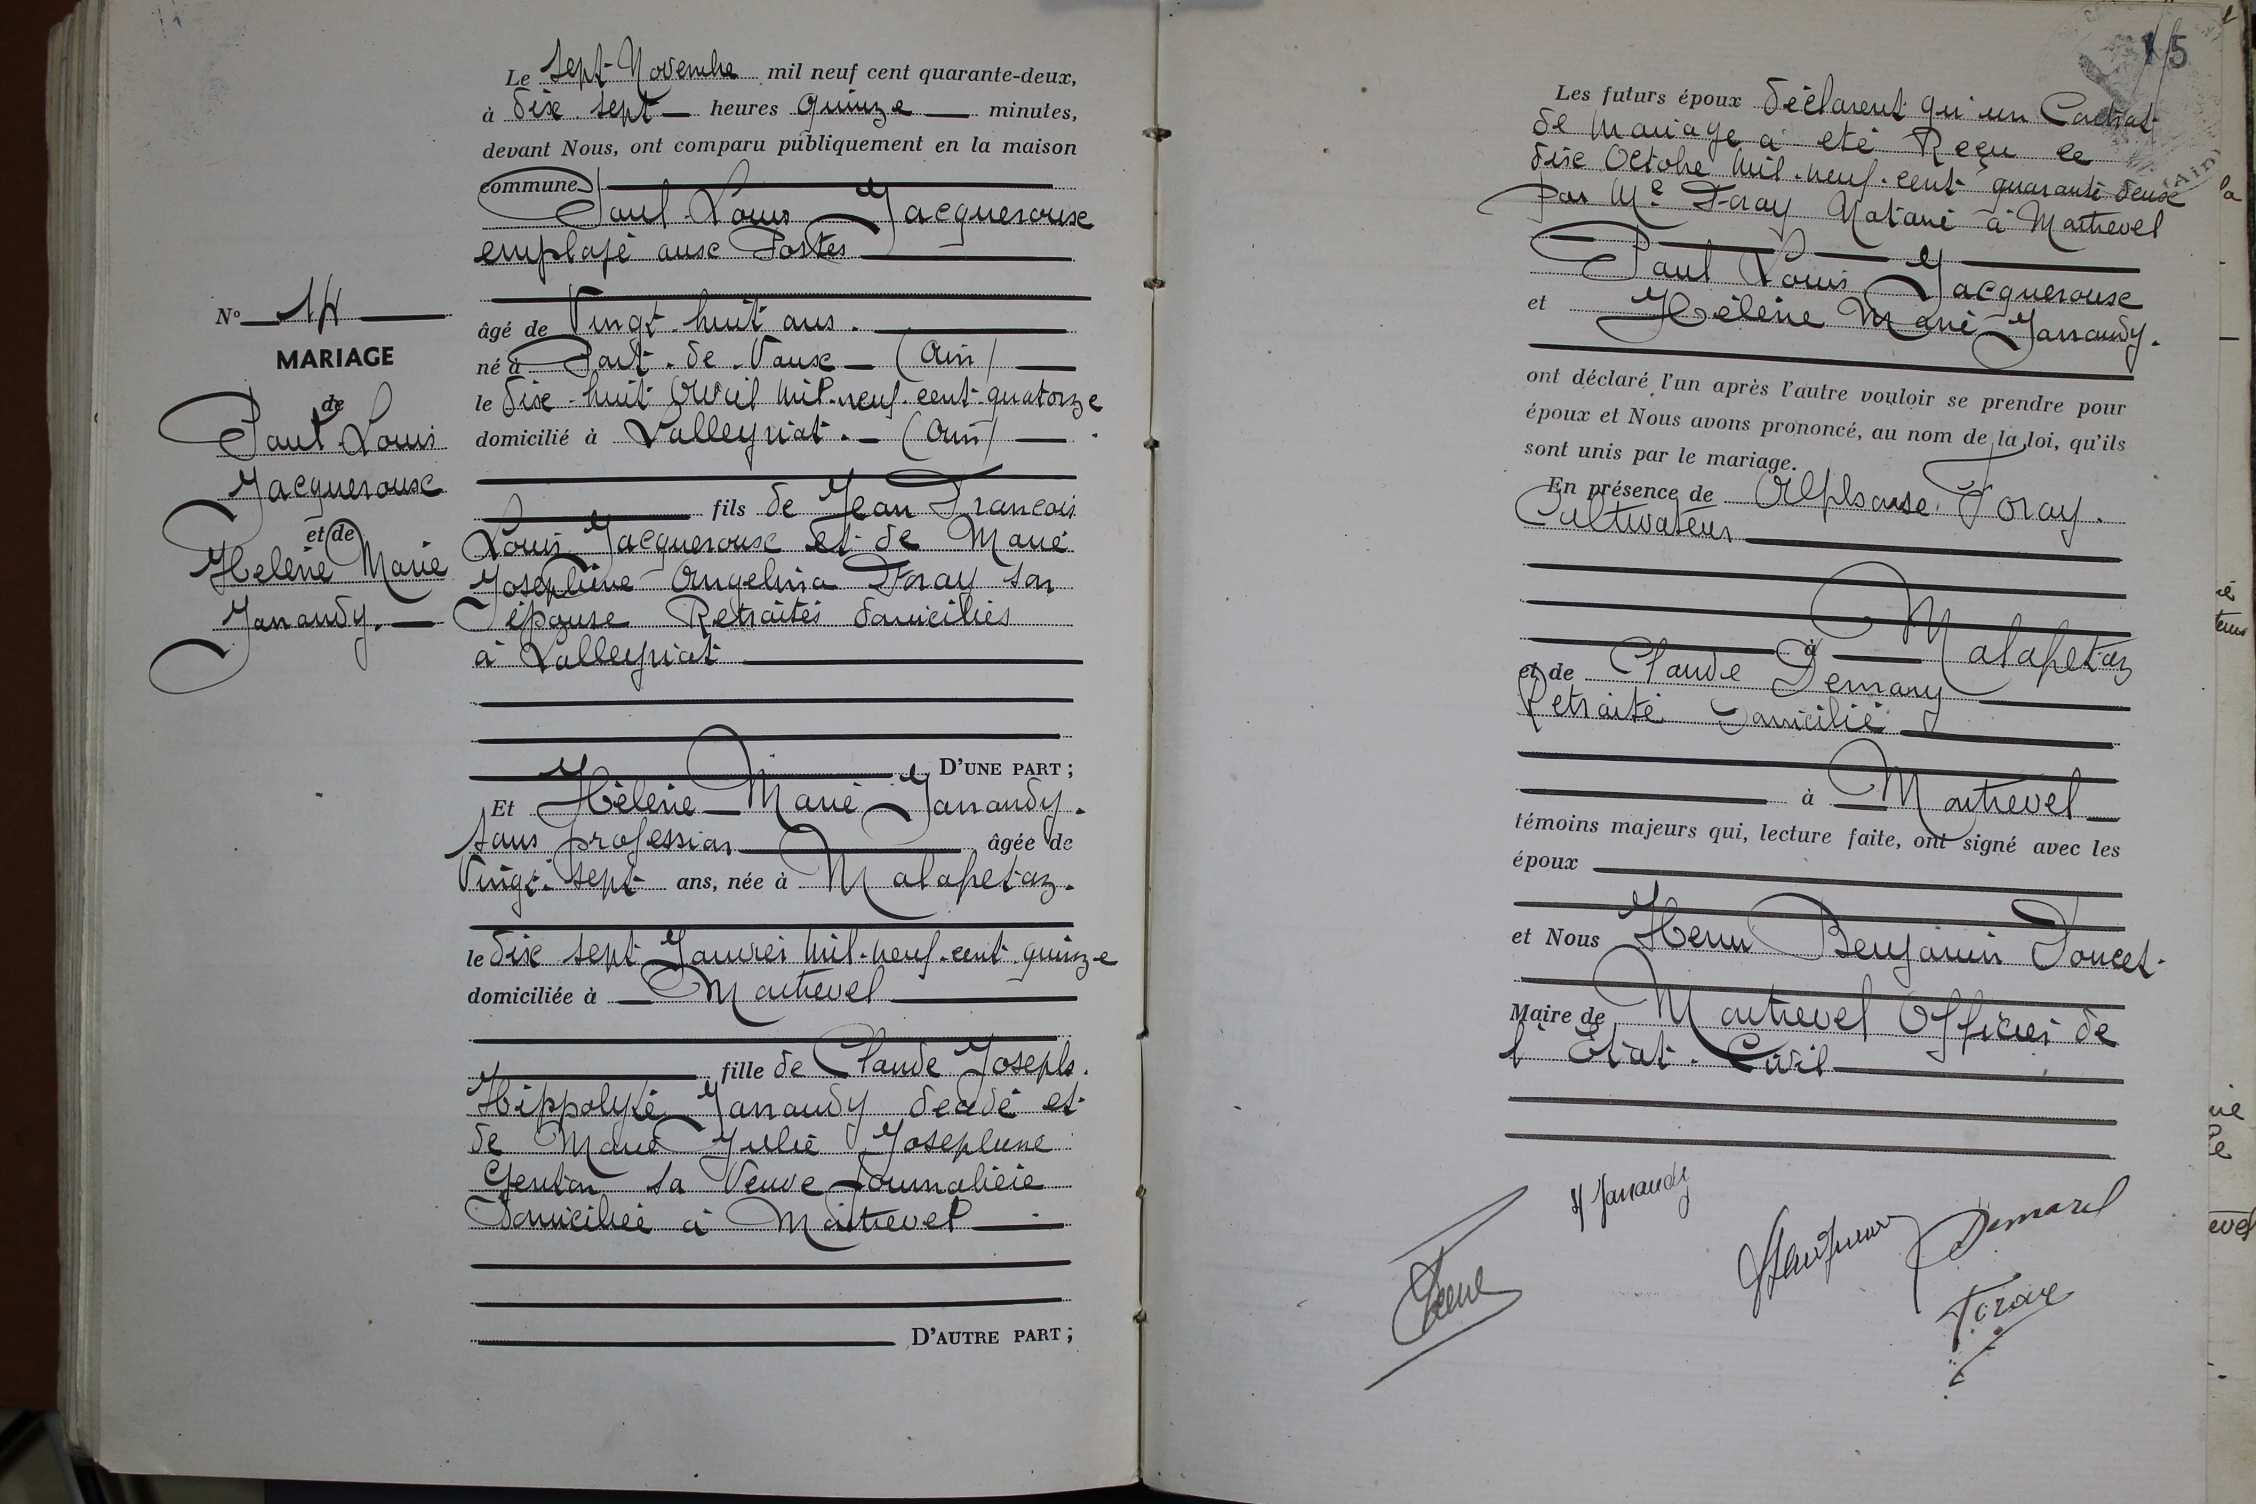 Le sept Novembre mil neuf cent quarante-deux,
à dix sept heures quinze minutes,
devant Nous, ont comparu publiquement en la maison
commune
Paul Louis Jacqueroux
employé aux Postes
N° 14
MARIAGE
de
Paul Louis
Jacqueroux
et de
Helène Marie
Janaudy.
âgé de Vingt huit ans.
né à Pont-de-Vaux (Ain)
le dix-huit Avril mil-neuf-cent-quatorze
domicilié à Lalleyriat. (Ain)
fils de Jean Francois
Louis Jacqueroux et de Marie
Josephine Angelina Foray son
épouse Retraités domiciliés
à Lalleyriat
D'UNE PART ;
Et Hélène Marie Janaudy.
sans profession âgée de
Vingt-sept ans, née à Malapetaz.
le dix sept Janvier mil-neuf-cent quinze
domiciliée à Montrevel
fille de Claude Joseph
Hippolyte Janaudy décédé et
de Marie Julie Josephine
Genton sa Veuve Journalière
Domiciliée à Montrevel
D'AUTRE PART ;
15
(Ain)
Les futurs époux déclarent qu'un Contrat
de mariage a été Reçu le
dix Octobre mil-neuf-cent quarante deux
par Me Foray Notaire à Montrevel
Paul Louis Jacqueroux
et Hélène Marie Janaudy.
ont déclaré l'un après l'autre vouloir se prendre pour
époux et Nous avons prononcé, au nom de la loi, qu'ils
sont unis par le mariage.
En présence de Alphonse Foray.
Cultivateur
à Malapetaz
et de Claude Demany
Retraité Domicilié
à Montrevel
témoins majeurs qui, lecture faite, ont signé avec les
époux
et Nous Henri Benjamin Poncet
Maire de Montrevel Officier de
l'Etat-Civil
H Janaudy
Foray